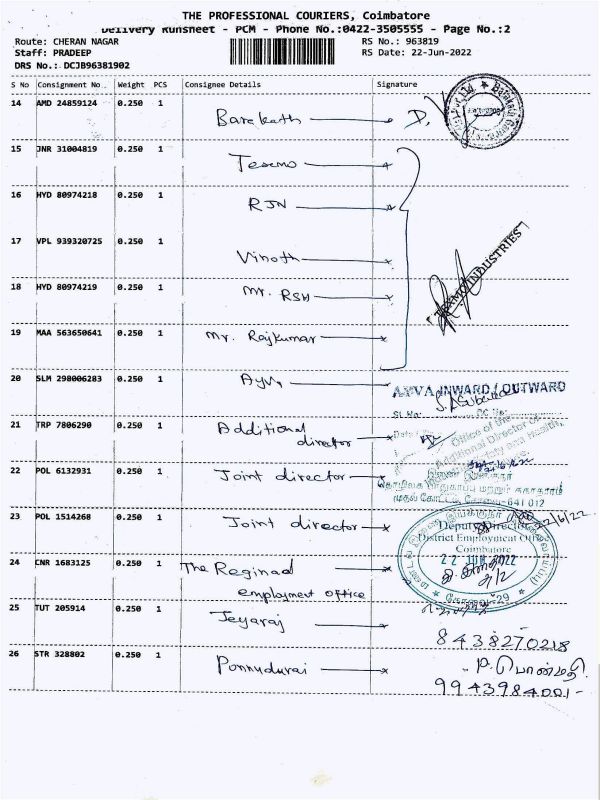 THE PROFESSIONAL COURIERS, Coimbatore
Delivery Runsheet - PCM - Phone No.:0422-3505555 - Page No.:2
Route: CHERAN NAGAR
Staff: PRADEEP
DRS No.: DCJB96381902
RS No.: 963819
RS Date: 22-Jun-2022
S No Consignment No. Weight PCS Consignee Details Signature
14 AMD 24859124 0.250 1 Barakath
15 JNR 31004819 0.250 1 Texmo
16 HYD 80974218 0.250 1 RJN
17 VPL 939320725 0.250 1 Vinoth
18 HYD 80974219 0.250 1 Mr. RSH
TEXMO INDUSTRIES
19 MAA 563650641 0.250 1 Mr. Rajkumar
20 SLM 298006283 0.250 1 Ayva
AYVA INWARD / OUTWARD
Sl.No: DC No:
Date
21 TRP 7806290 0.250 1 Additional director
Office of the
Additional Director of
Safety and Health,
22 POL 6132931 0.250 1 Joint director
தொழிலக பாதுகாப்பு மற்றும் சுகாதாரம்
641 012
23 POL 1514268 0.250 1 Joint director
22/6/22
Deputy Director
District Employment Office
Coimbatore
22 JUN 2022
கோவை-29
24 CNR 1683125 0.250 1 The Reginad employment office
25 TUT 205914 0.250 1 Jeyaraj
8438270218
26 STR 328802 0.250 1 Ponnudurai
பொன்மதி
9943984001-